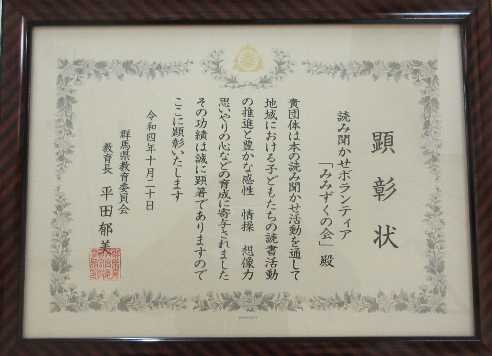 顕彰状
読み聞かせボランティア
「みみずくの会」殿
貴団体は本の読み聞かせ活動を通して
地域における子どもたちの読書活動
の推進と豊かな感性 情操 想像力
思いやりの心などの育成に寄与されました
その功績は誠に顕著でありますので
ここに顕彰いたします
令和四年十月二十日
群馬県教育委員会
教育長 平田郁美